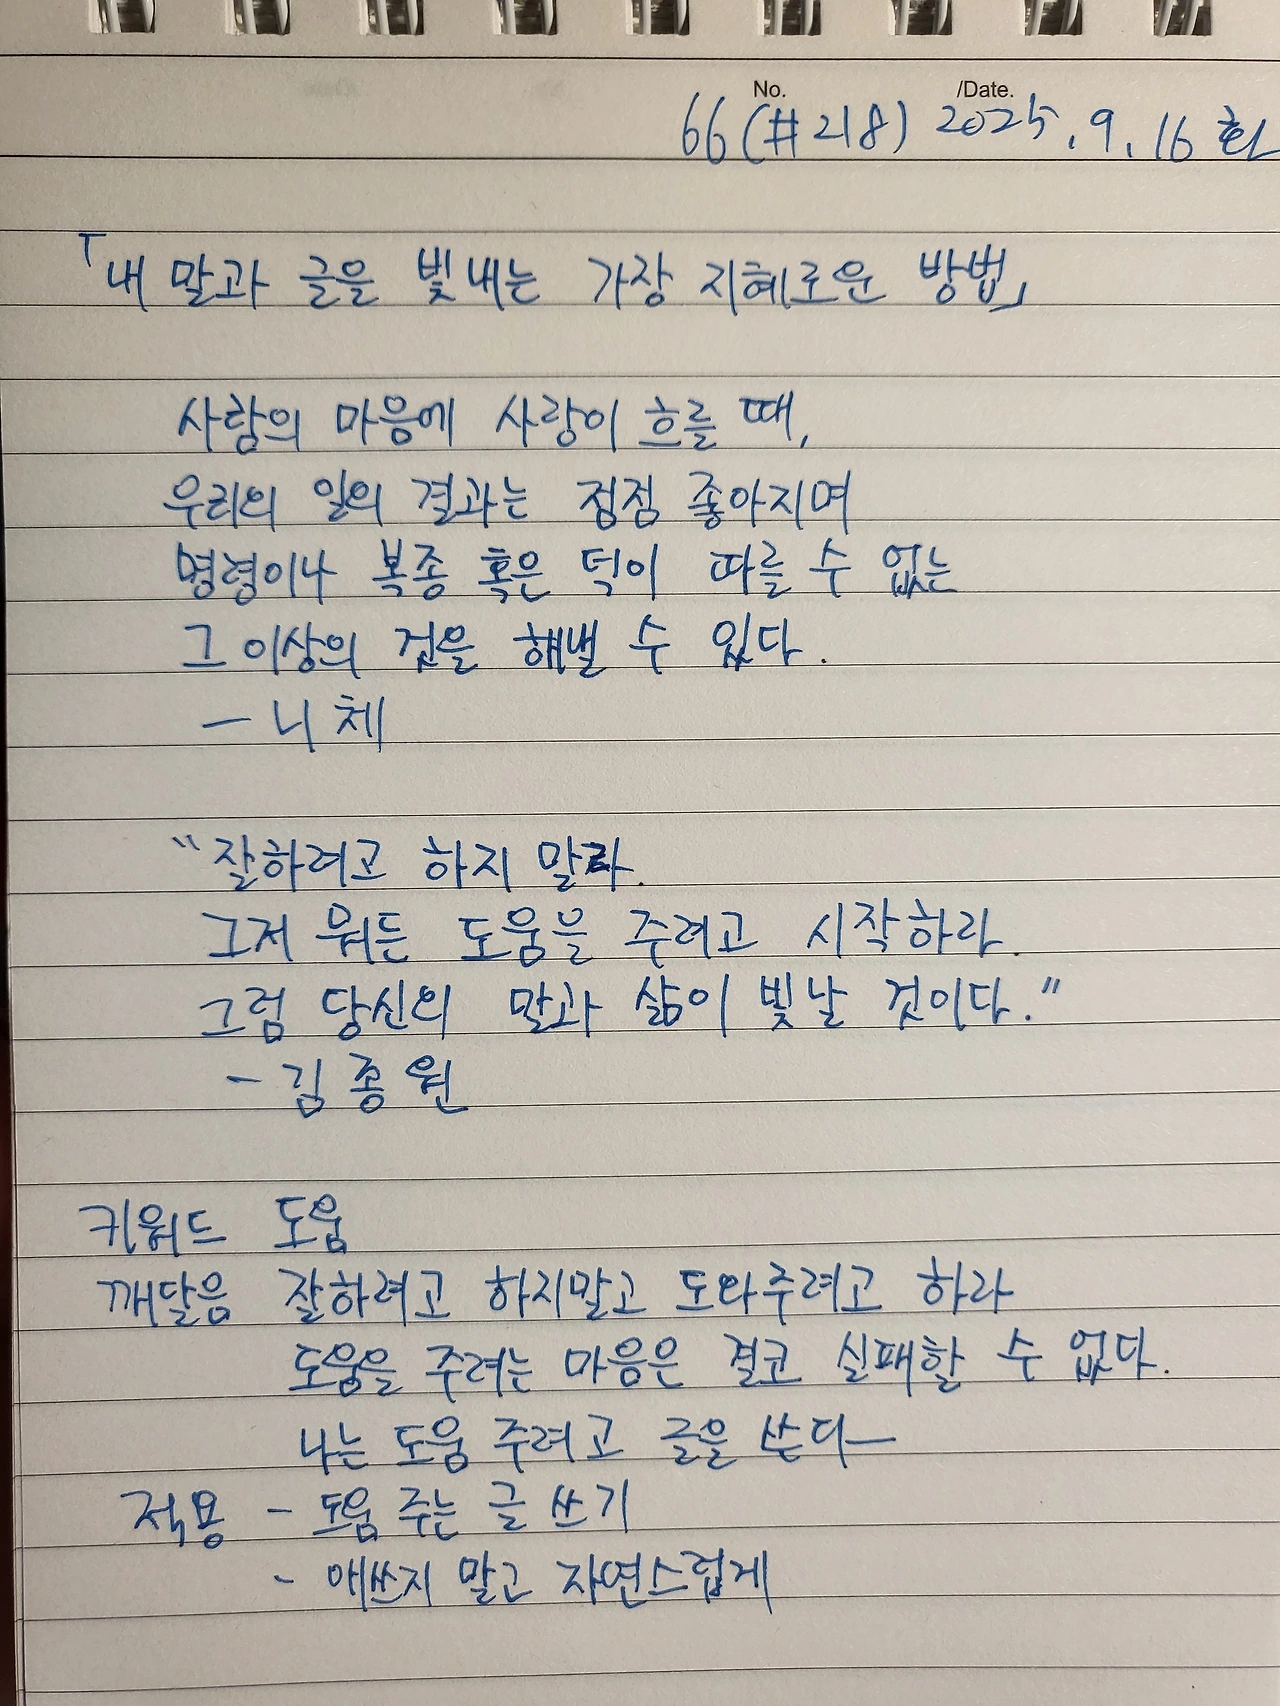 No. /Date.
66 (#218) 2025. 9. 16 화
「내 말과 글을 빛내는 가장 지혜로운 방법」
사람의 마음에 사랑이 흐를 때,
우리의 일의 결과는 점점 좋아지며
명령이나 복종 혹은 덕이 따를 수 없는
그 이상의 것을 해낼 수 있다.
- 니체
"잘하려고 하지 말라.
그저 뭐든 도움을 주려고 시작하라.
그럼 당신의 말과 삶이 빛날 것이다."
- 김종원
키워드 도움
깨달음 잘하려고 하지말고 도와주려고 하라
도움을 주려는 마음은 결코 실패할 수 없다.
나는 도움 주려고 글을 쓴다
적용 - 도움 주는 글 쓰기
- 애쓰지 말고 자연스럽게